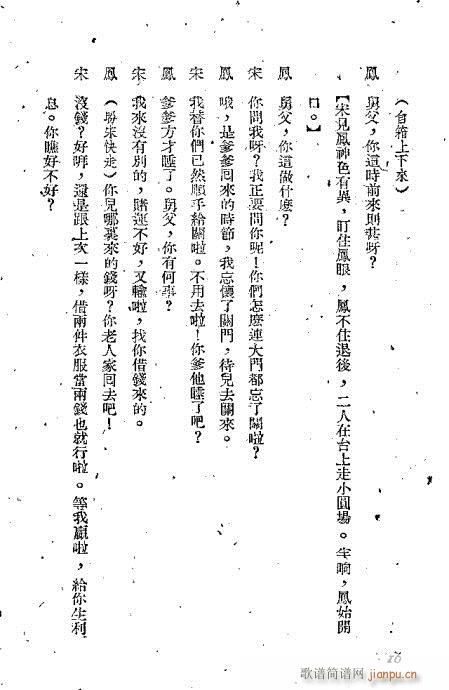 （自箱上下來）
鳳　舅父，你這時前來則甚呀？
【宋見鳳神色有異，盯住鳳眼，鳳不住退後，二人在台上走小圓場。半晌，鳳始開
口。】
鳳　舅父，你這做什麼？
宋　你問我呀？我正要問你呢！你們怎麼連大門都忘了關啦？
鳳　哦，是爹爹回來的時節，我忘懷了關門，待兒去關來。
宋　我替你們已然順手給關啦。不用去啦！你爹他睡了吧？
鳳　爹爹方才睡了。舅父，你有何事？
宋　我來沒有別的，賭運不好，又輸啦，找你借錢來的。
鳳　（盼宋快走）你兒哪裏來的錢呀？你老人家回去吧！
宋　沒錢？好啊，還是跟上次一樣，借兩件衣服當兩錢也就行啦。等我贏啦，給你生利
息。你瞧好不好？
16
歌谱简谱网
jianpu.cn